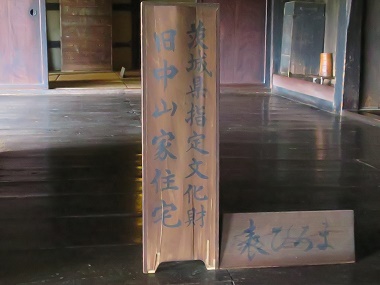 茨城県指定文化財
旧中山家住宅
表ひろま